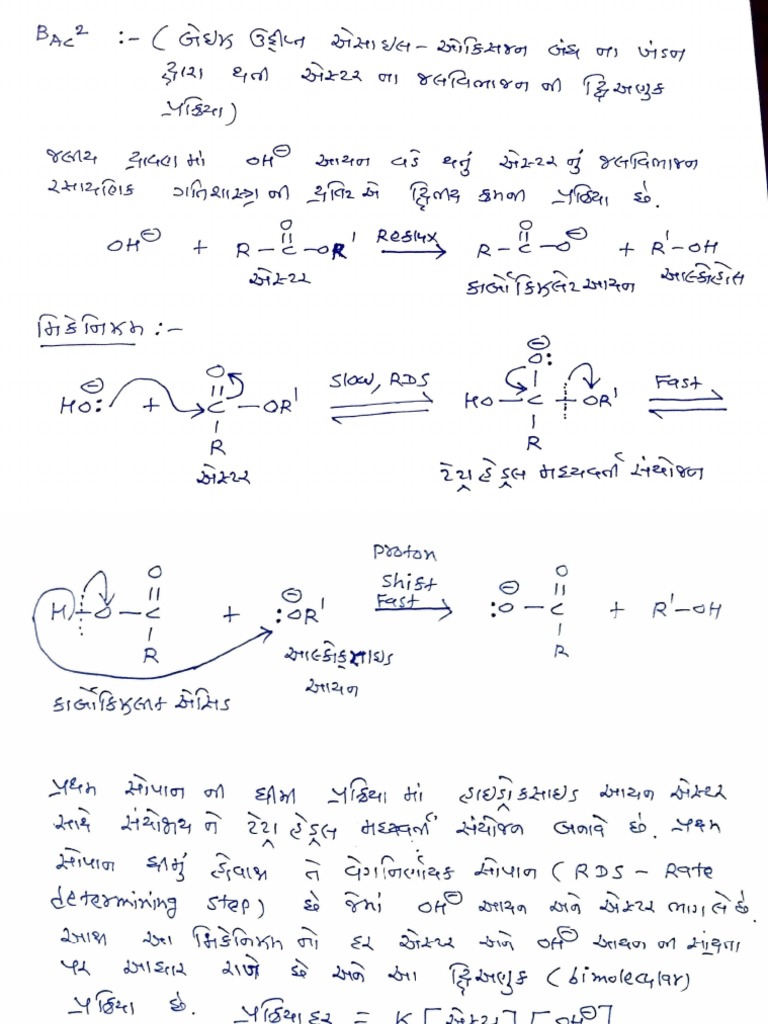 BAC2 :- ( બેઇઝ ઉદ્દીપ્ત એસાઇલ - ઓક્સિજન બંધ ના ખંડન
દ્વારા થતી એસ્ટર ના જલવિભાજન ની દ્વિઅણુક
પ્રક્રિયા)
જલીય દ્રાવણ માં OH⊖ આયન વડે થતું એસ્ટર નું જલવિભાજન
રસાયણિક ગતિશાસ્ત્ર ની દ્રષ્ટિ એ દ્વિતીય ક્રમની પ્રક્રિયા છે.
OH⊖ + R - C - OR' Reflux R - C - O⊖ + R' - OH
O O
એસ્ટર કાર્બોક્ઝિલેટ આયન આલ્કોહોલ
મિકેનિઝમ :-
HO:⊖ + O = C - OR' Slow, RDS HO - C - OR' Fast
R O:⊖ R
એસ્ટર ટેટ્રાહેડ્રલ મધ્યવર્તી સંયોજન
H - O - C + :OR'⊖ Proton Shift Fast :O⊖ - C + R' - OH
O R O R
કાર્બોક્ઝિલીક એસિડ આલ્કોક્સાઇડ
આયન
પ્રથમ સોપાન ની ધીમી પ્રક્રિયા માં હાઇડ્રોકસાઇડ આયન એસ્ટર
સાથે સંયોજાય ને ટેટ્રાહેડ્રલ મધ્યવર્તી સંયોજન બનાવે છે. પ્રથમ
સોપાન ધીમું હોવાથી તે વેગનિર્ણાયક સોપાન ( RDS - Rate
determining step) છે જેમાં OH⊖ આયન અને એસ્ટર ભાગ લે છે.
આથી આ મિકેનિઝમ નો દર એસ્ટર અને OH⊖ આયન ની સાંદ્રતા
પર આધાર રાખે છે અને આ દ્વિઅણુક (bimolecular)
પ્રક્રિયા છે. પ્રક્રિયા દર = K [એસ્ટર] [OH⊖]